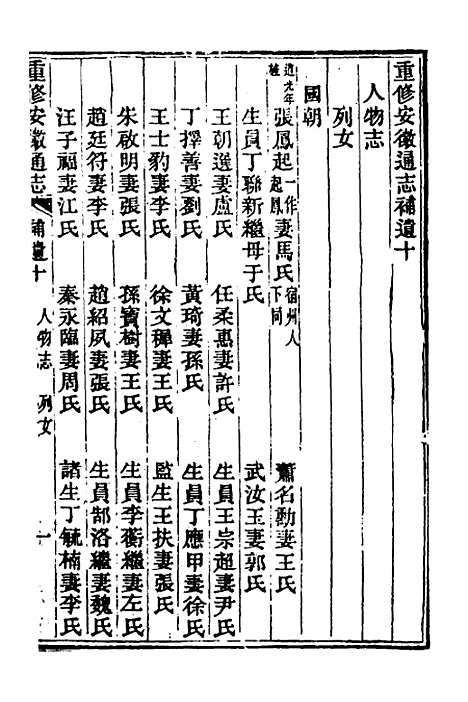 重修安徽通志補遺十
人物志
列女
國朝
道光年旌張鳳起一作起鳳妻馬氏宿州人下同 蕭名勳妻王氏
生員丁聯新繼母于氏 武汝玉妻郭氏
王朝選妻盧氏 任柔惠妻許氏 生員王宗超妻尹氏
丁擇善妻劉氏 黃琦妻孫氏 生員丁應甲妻徐氏
王士豹妻李氏 徐文稺妻王氏 監生王扶妻張氏
朱啟明妻張氏 孫寶樹妻王氏 生員李蘅繼妻左氏
趙廷符妻李氏 趙紹夙妻張氏 生員郜洛繼妻魏氏
汪子福妻江氏 秦永臨妻周氏 諸生丁毓楠妻李氏
重修安徽通志 補遺十 人物志 列女 一